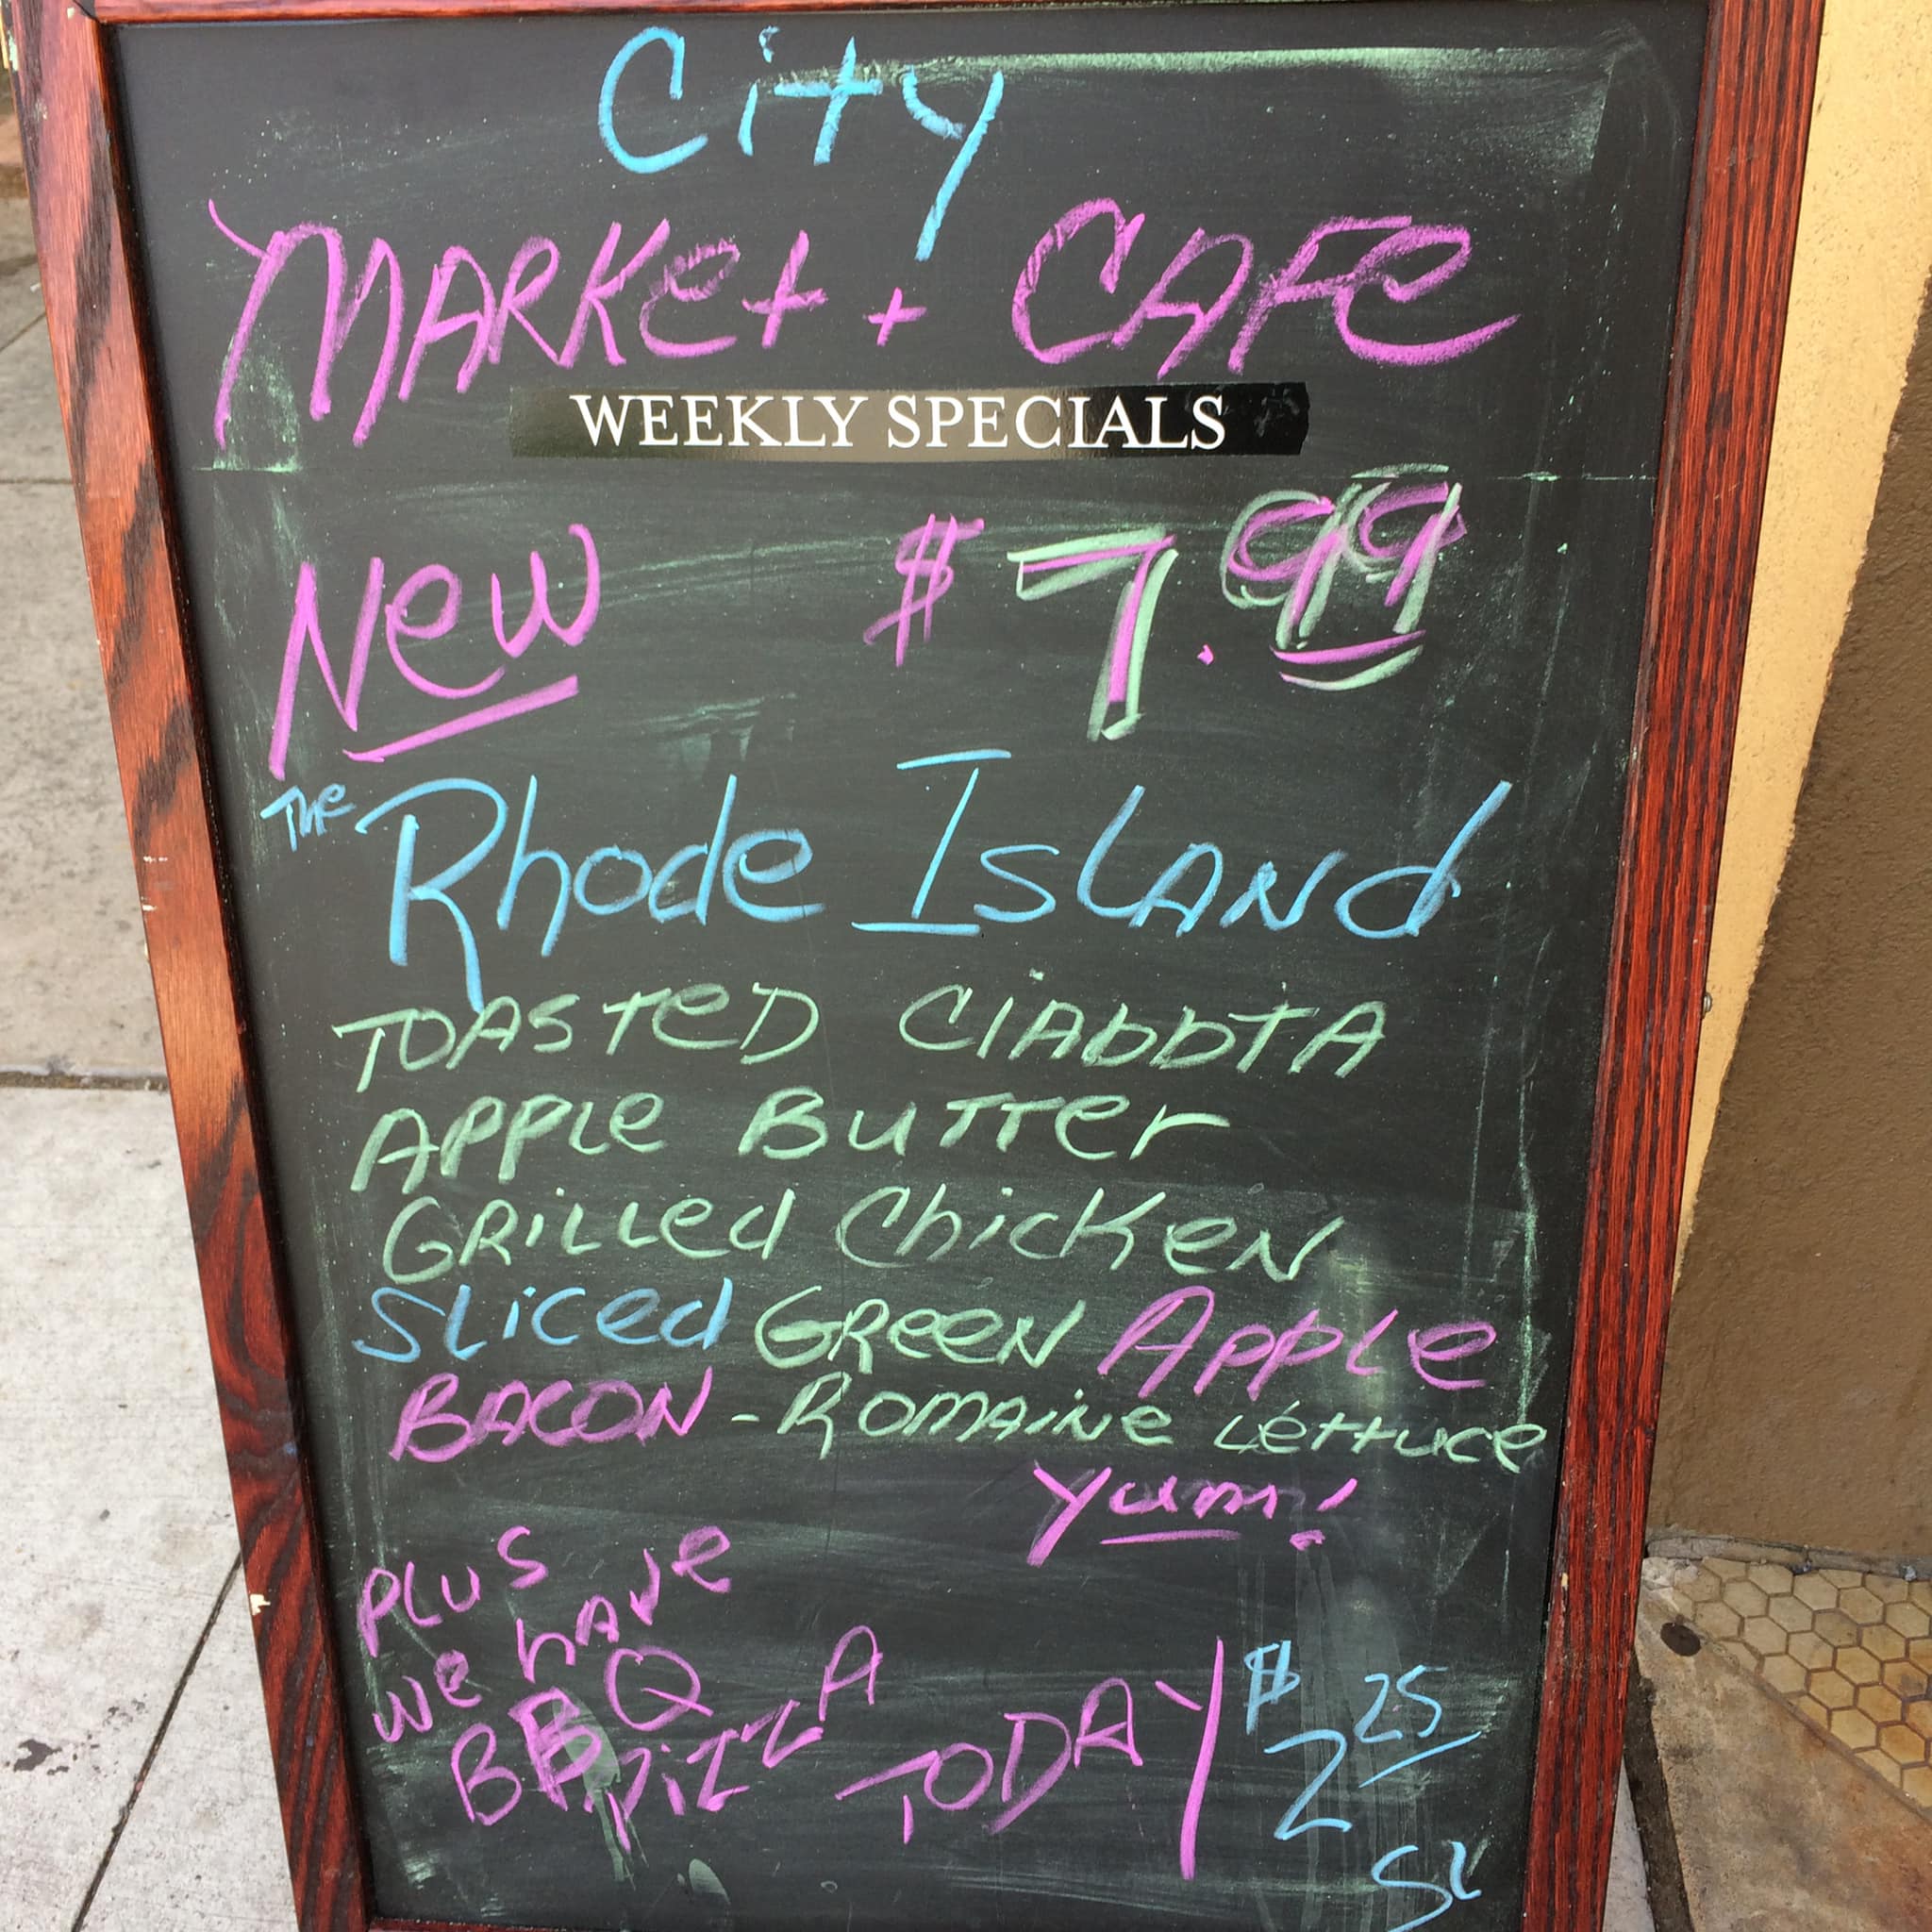 City
MARKet + CAFe
WEEKLY SPECIALS
New $7.99
The Rhode IsLAND
TOASTeD CIAbbTA
APPLe BuTTer
GRiLLed ChicKeN
SLiced GReeN APPLe
BACON - ROMAiNe Lettuce
Yum!
PLuS
we hAve
BBQ PiZZA TODAY $2.25
SL